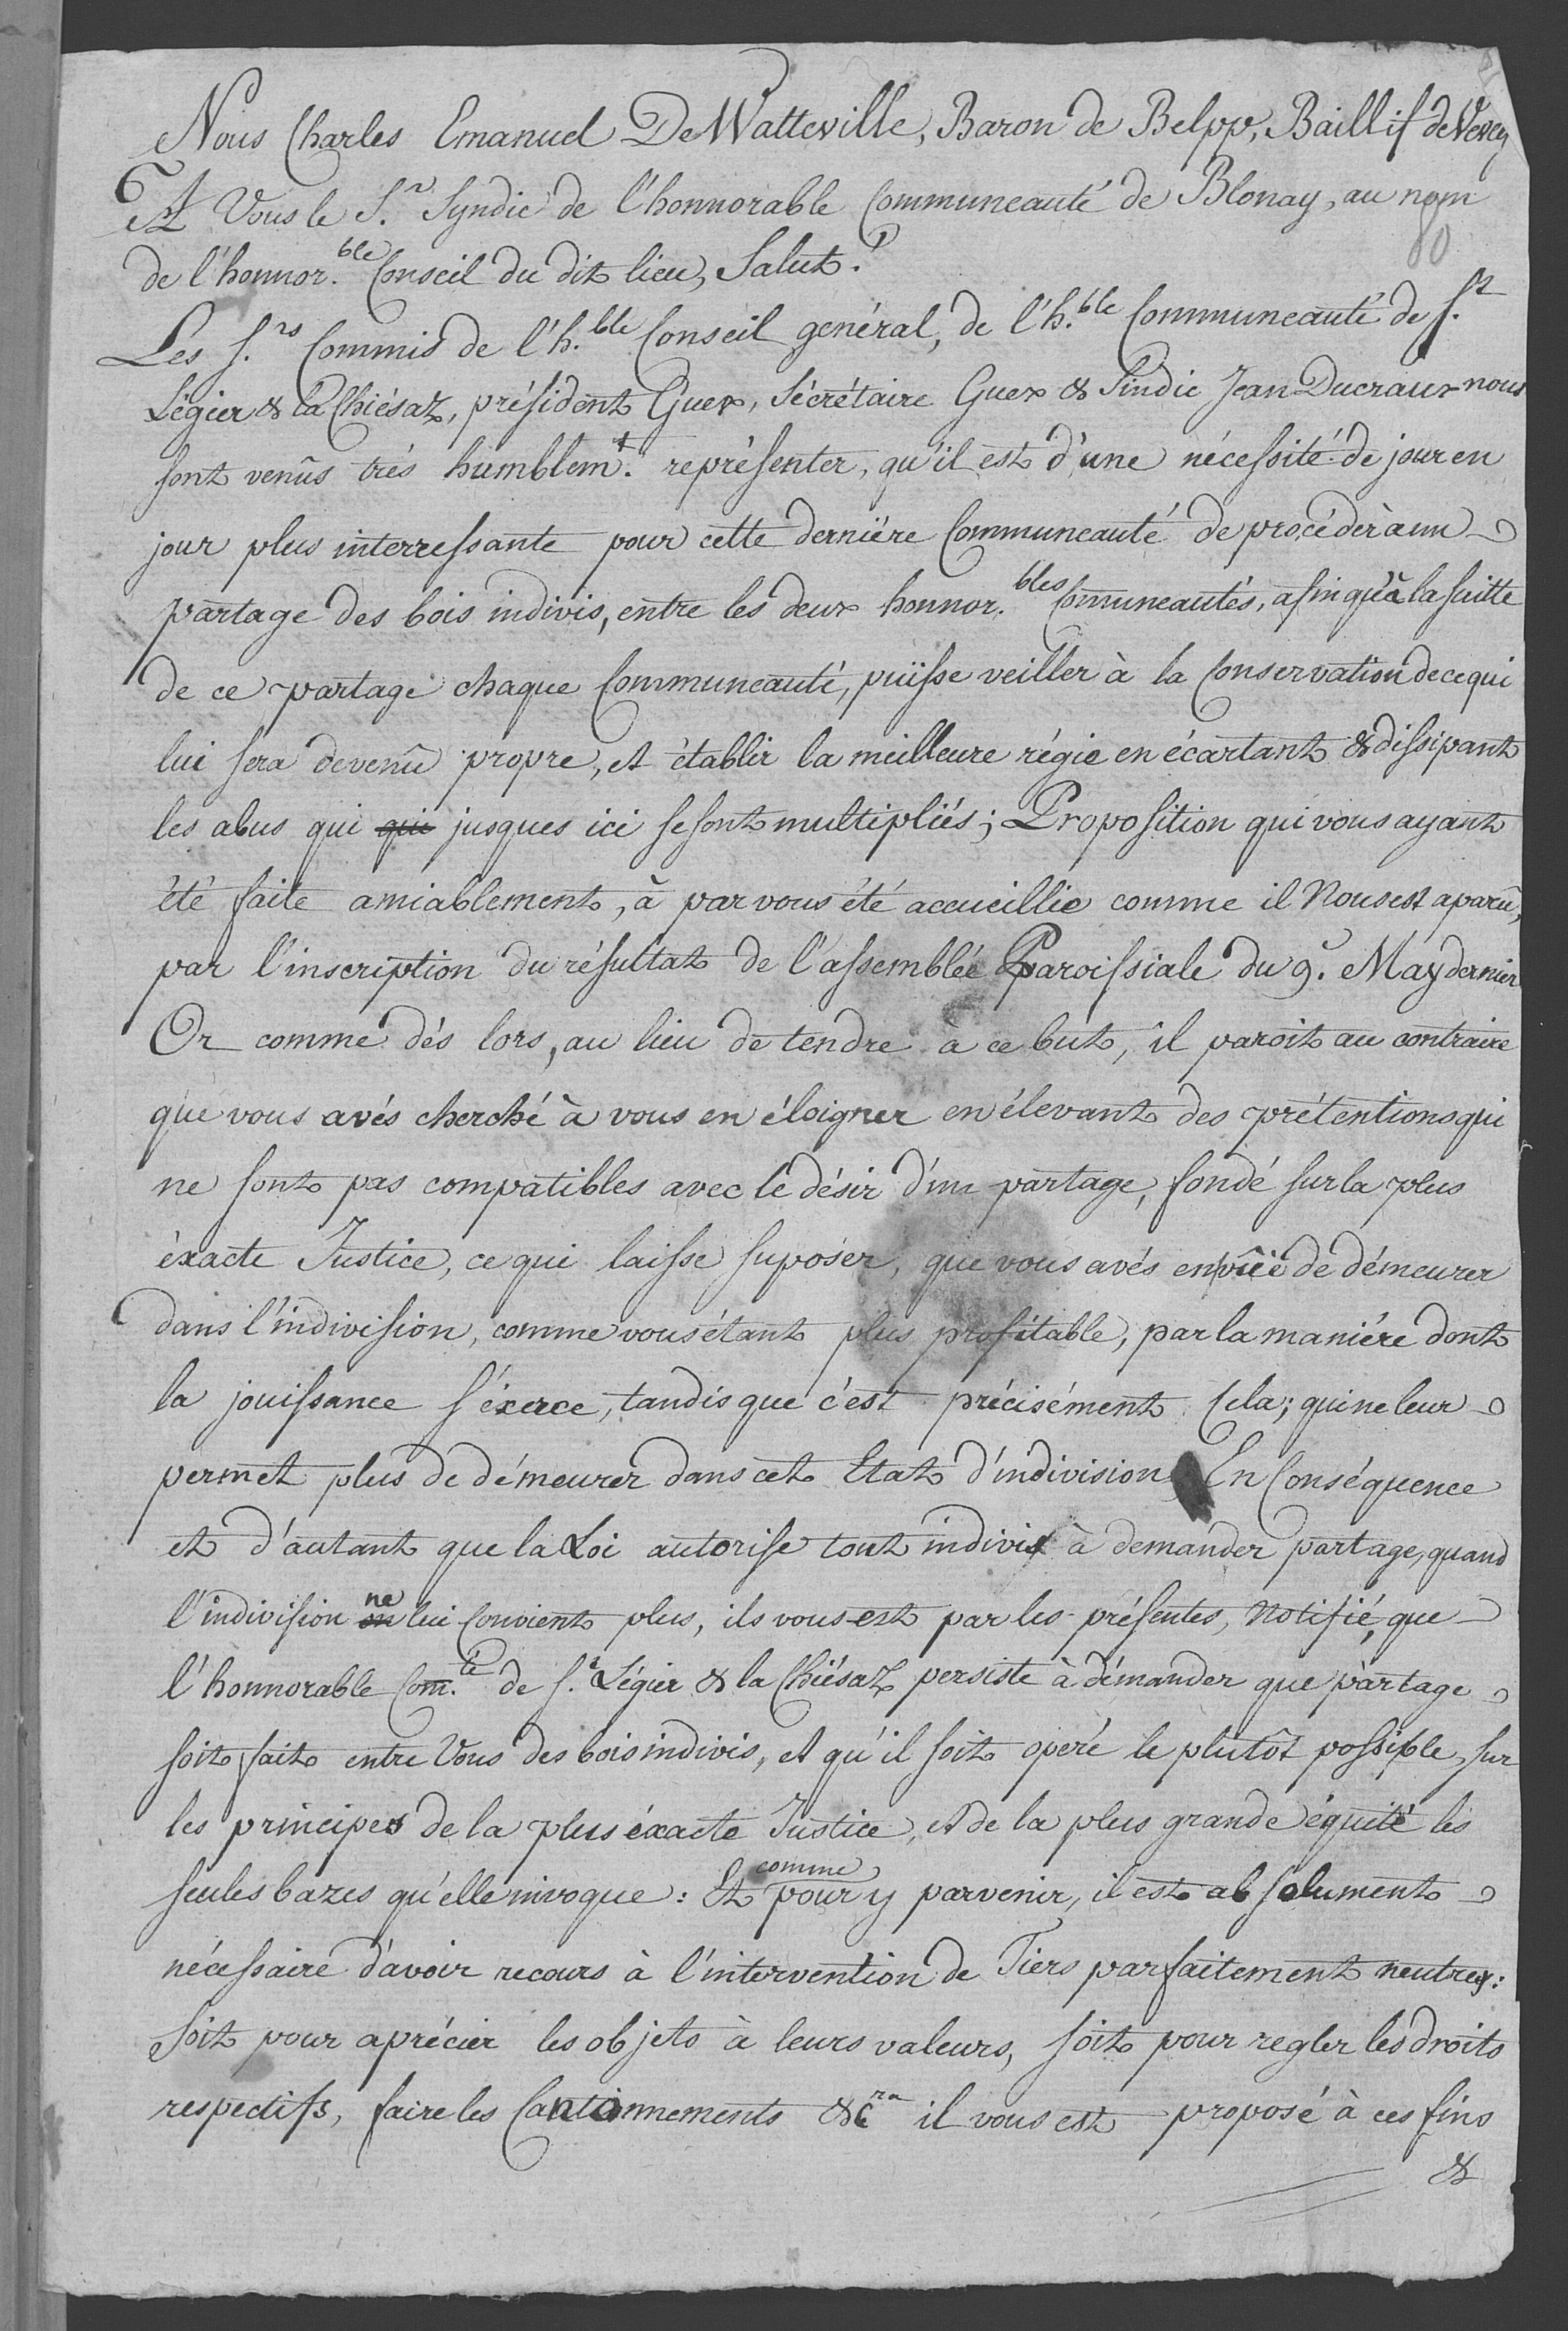 Nous Charles Emanuel De Watteville, Baron de Belpp, Baillif de Vevey
A Vous le S.r Syndic de l'honnorable Communeauté de Blonay, au nom
80
de l'honnor.ble Conseil du dit lieu, Salut.
Les S.rs Commis de l'h.ble Conseil general, de l'h.ble Communeauté de S.t
Légier & la Chiésaz, président Guex, Sécrétaire Guex & Sindic Jean Ducraux nous
sont venûs trés humblem.t représenter, qu'il est d'une nécessité de jour en
jour plus interressante pour cette derniére Communeauté de procéder à un
partage des bois indivis, entre les deux honnor.bles Comuneautés, afin qu'à la suitte
de ce partage chaque Communeauté, puisse veiller à la Conservation de ce qui
lui sera devenû propre, et établir la meilleure régie en écartant & dissipant
les abus qui qui jusques ici se sont multipliés; Proposition qui vous ayant
été faite amiablement, à par vous été accueillie comme il Nous est aparû,
par l'inscription du résultat de l'assemblée Paroissiale du 9.e May dernier
Or comme dés lors, au lieu de tendre à ce but, il paroit au contraire
que vous avés cherché à vous en éloigner en élevant des prétentions qui
ne sont pas compatibles avec le désir d'un partage, fondé sur la plus
éxacte Justice, ce qui laisse suposer, que vous avés envîe de démeurer
dans l'indivision, comme vous étant plus profitable, par la maniére dont
la jouissance s'éxerce, tandis que c'est précisément Cela; qui ne leur
permet plus de démeurer dans cet Etat d'indivision En Conséquence
et d'autant que la Loi autorise tout indivis à demander partage, quand
l'indivision ne lui Convient plus, ils vous est par les présentes, Notifié, que
l'honnorable Com.té de S.t Légier & la Chiésaz persiste à démander que partage
soit fait entre Vous des bois indivis, et qu'il soit operé le plutôt possible, sur
les principes de la plus éxacte Justice, et de la plus grande équité les
seules bazes qu'elle invoque: Et comme pour y parvenir, il est absolument
nécessaire d'avoir recours à l'intervention de Tiers parfaitement neutres:
Soit pour aprécier les objets à leurs valeurs, soit pour regler les droits
respectifs, faire les Cantonnements &c.ra il vous est proposé à ces fins
&